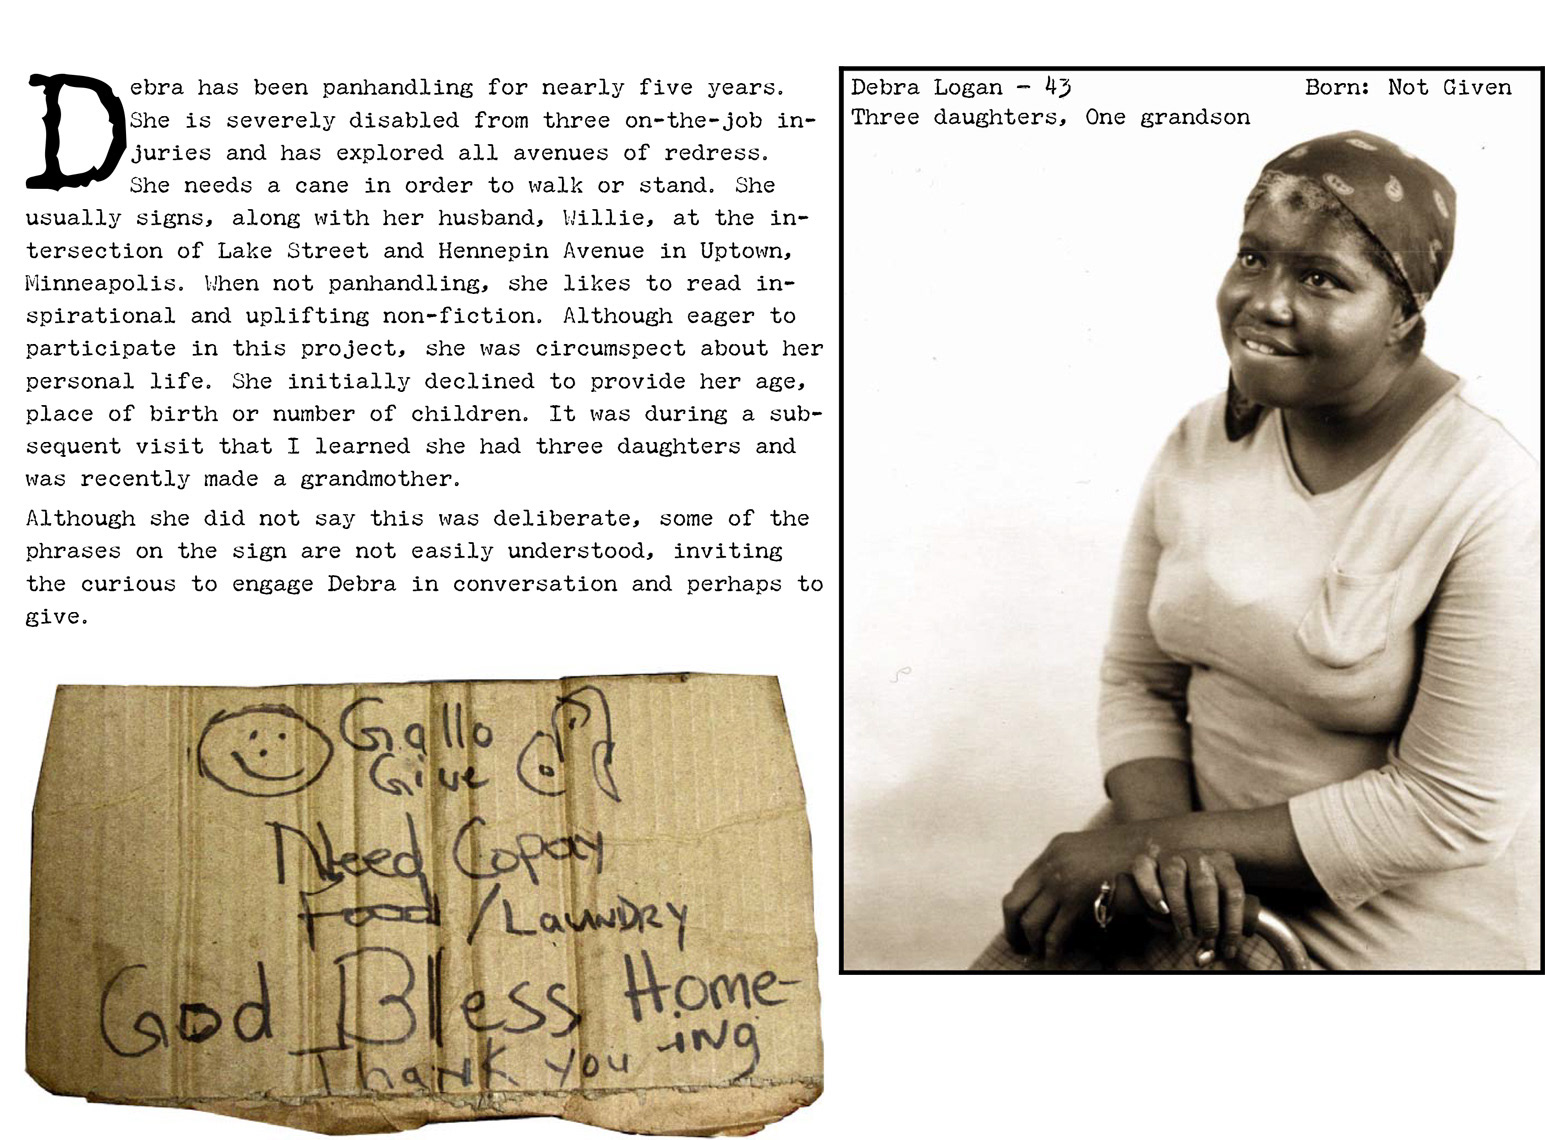 Debra has been panhandling for nearly five years.
She is severely disabled from three on-the-job in-
juries and has explored all avenues of redress.
She needs a cane in order to walk or stand. She
usually signs, along with her husband, Willie, at the in-
tersection of Lake Street and Hennepin Avenue in Uptown,
Minneapolis. When not panhandling, she likes to read in-
spirational and uplifting non-fiction. Although eager to
participate in this project, she was circumspect about her
personal life. She initially declined to provide her age,
place of birth or number of children. It was during a sub-
sequent visit that I learned she had three daughters and
was recently made a grandmother.
Although she did not say this was deliberate, some of the
phrases on the sign are not easily understood, inviting
the curious to engage Debra in conversation and perhaps to
give.
Gallo
Give
Need Copay
Food / LauNDRY
God Bless Home-
ing
ThaNK you
Debra Logan - 43 Born: Not Given
Three daughters, One grandson